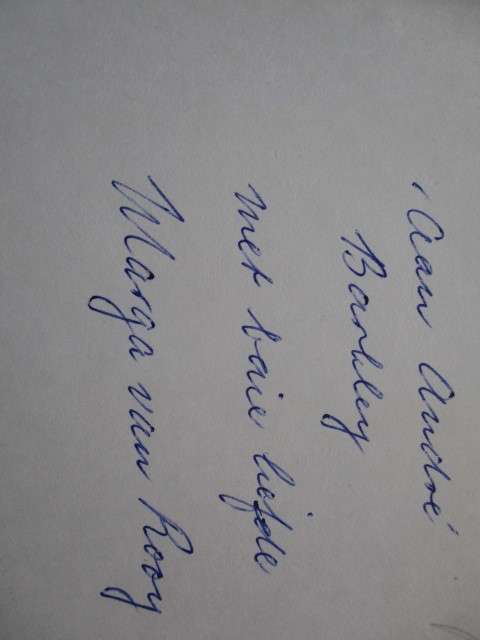 Aan André
Barkley
met baie liefde
Marga van Rooy